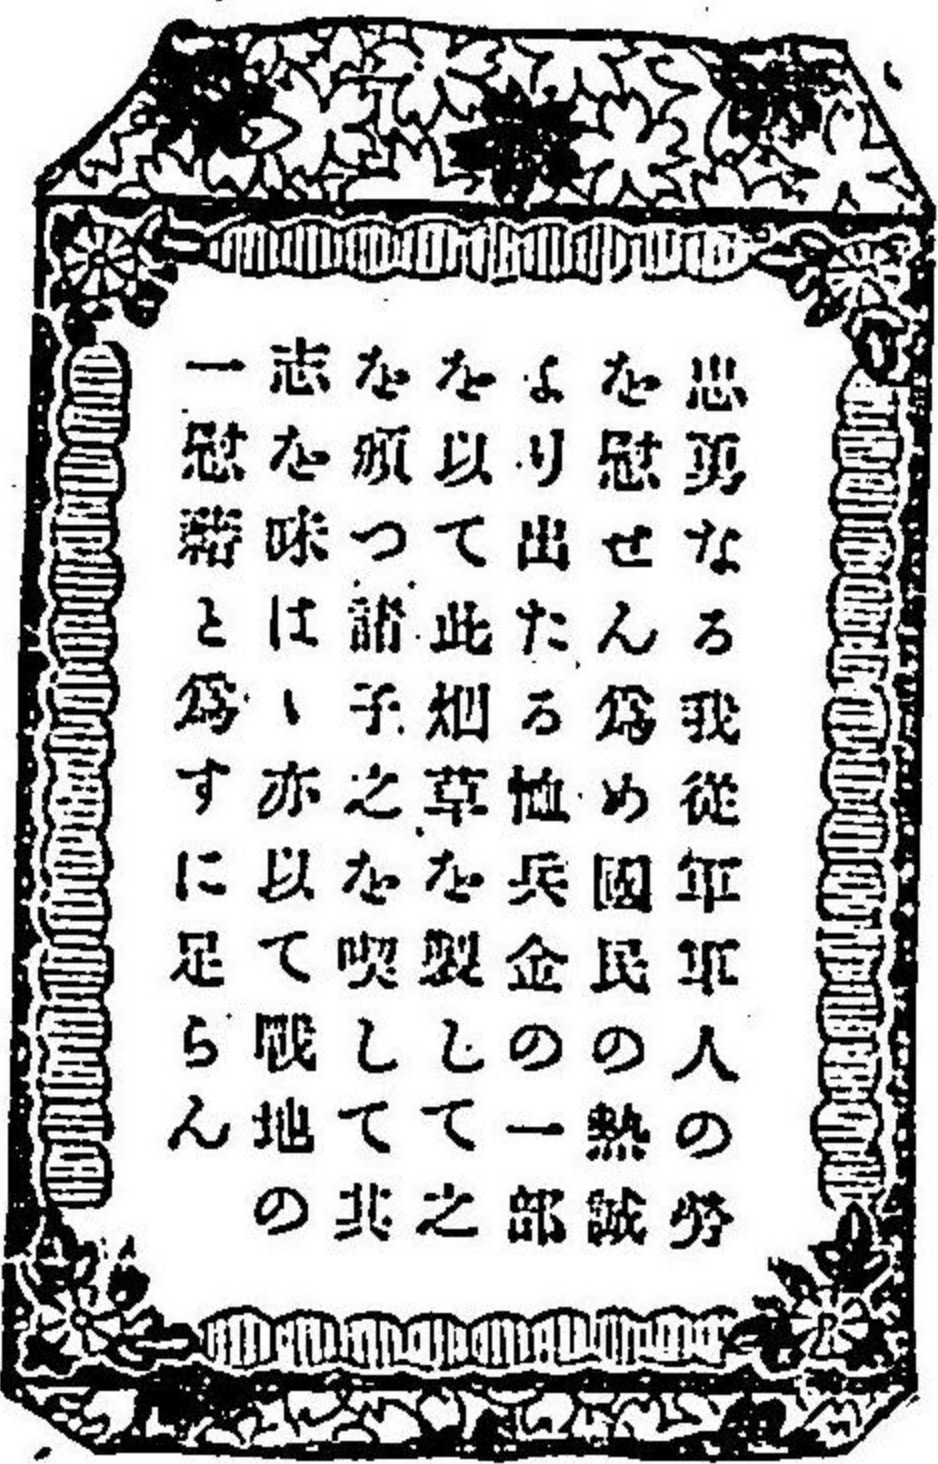 忠勇なる我從軍軍人の勞
を慰せん爲め國民の熱誠
より出たる恤兵金の一部
を以て此烟草を製して之
を頒つ諸子之を喫して其
志を味はゝ亦以て戰地の
一慰藉と爲すに足らん